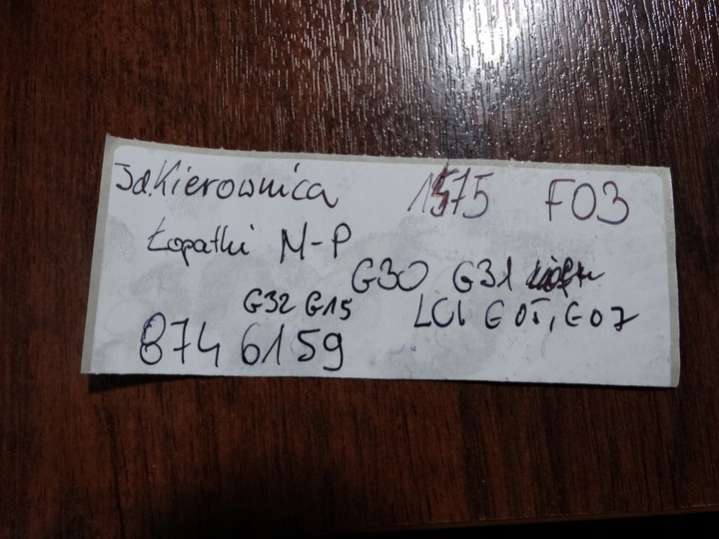 Id.Kierownica 1575 F03
Łopatki M-P
G30 G31
G32 G15 LCI G05, G07
8746159